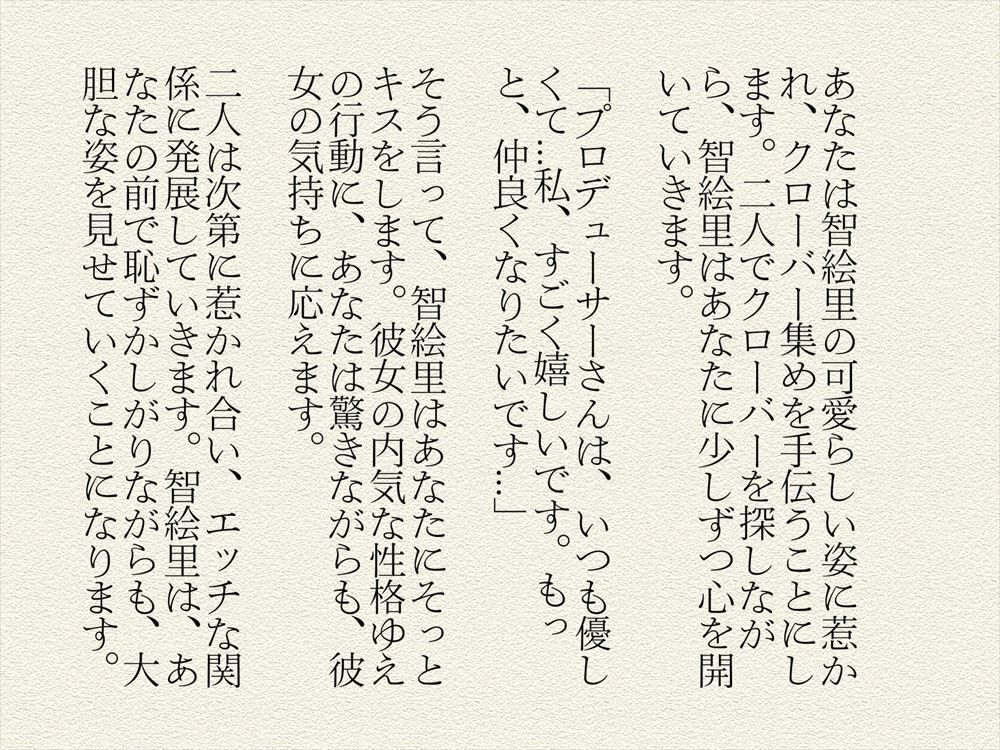 あなたは智絵里の可愛らしい姿に惹か
れ、クローバー集めを手伝うことにし
ます。二人でクローバーを探しなが
ら、智絵里はあなたに少しずつ心を開
いていきます。
「プロデューサーさんは、いつも優し
くて…私、すごく嬉しいです。もっ
と、仲良くなりたいです…」
そう言って、智絵里はあなたにそっと
キスをします。彼女の内気な性格ゆえ
の行動に、あなたは驚きながらも、彼
女の気持ちに応えます。
二人は次第に惹かれ合い、エッチな関
係に発展していきます。智絵里は、あ
なたの前で恥ずかしがりながらも、大
胆な姿を見せていくことになります。